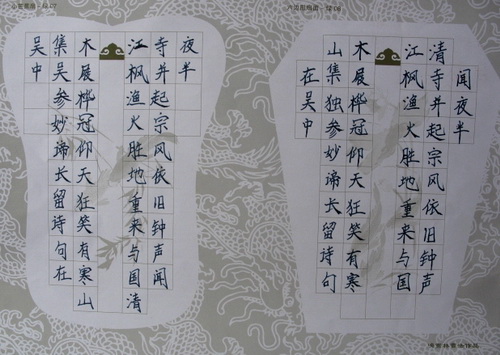 闻夜半
清寺并起宗风依旧钟声
江枫渔火胜地重来与国
木展桦冠仰天狂笑有寒
山集独参妙谛长留诗句
在吴中
夜半
寺并起宗风依旧钟声闻
江枫渔火胜地重来与国清
木展桦冠仰天狂笑有寒山
集吴参妙谛长留诗句在
吴中